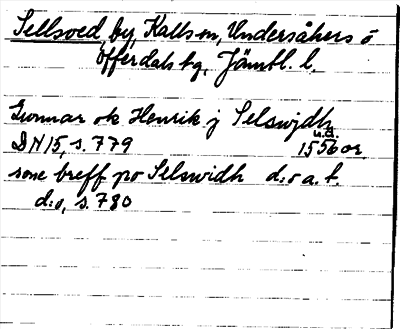 Sellsved, by, Kalls sn, Undersåkers o
Offerdals tg, Jämtl. l.
Gunnar ok Henrik j Selswidh
u.å.
DN 15, s. 779 1556 or.
sone breff po Selswidh d:o a. f.
d:o, s. 780